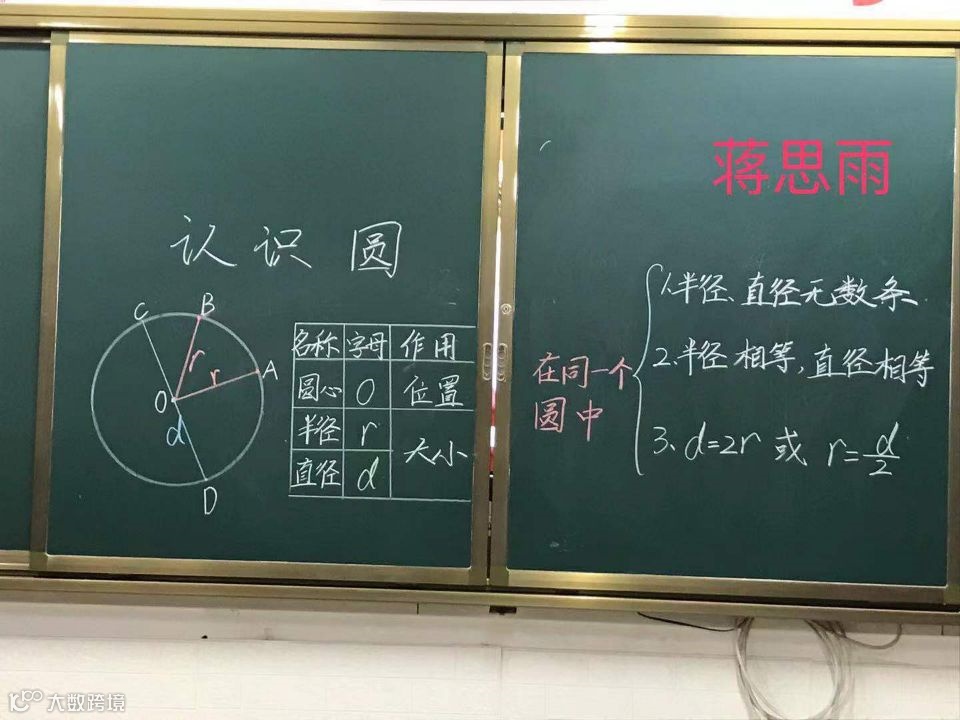 蒋思雨
认识圆
C
B
r
A
r
O
d
D
名称 字母 作用
圆心 O 位置
半径 r 大小
直径 d
在同一个
圆中
1.半径、直径无数条
2.半径相等,直径相等
3、d=2r 或 r=d/2
大数跨境